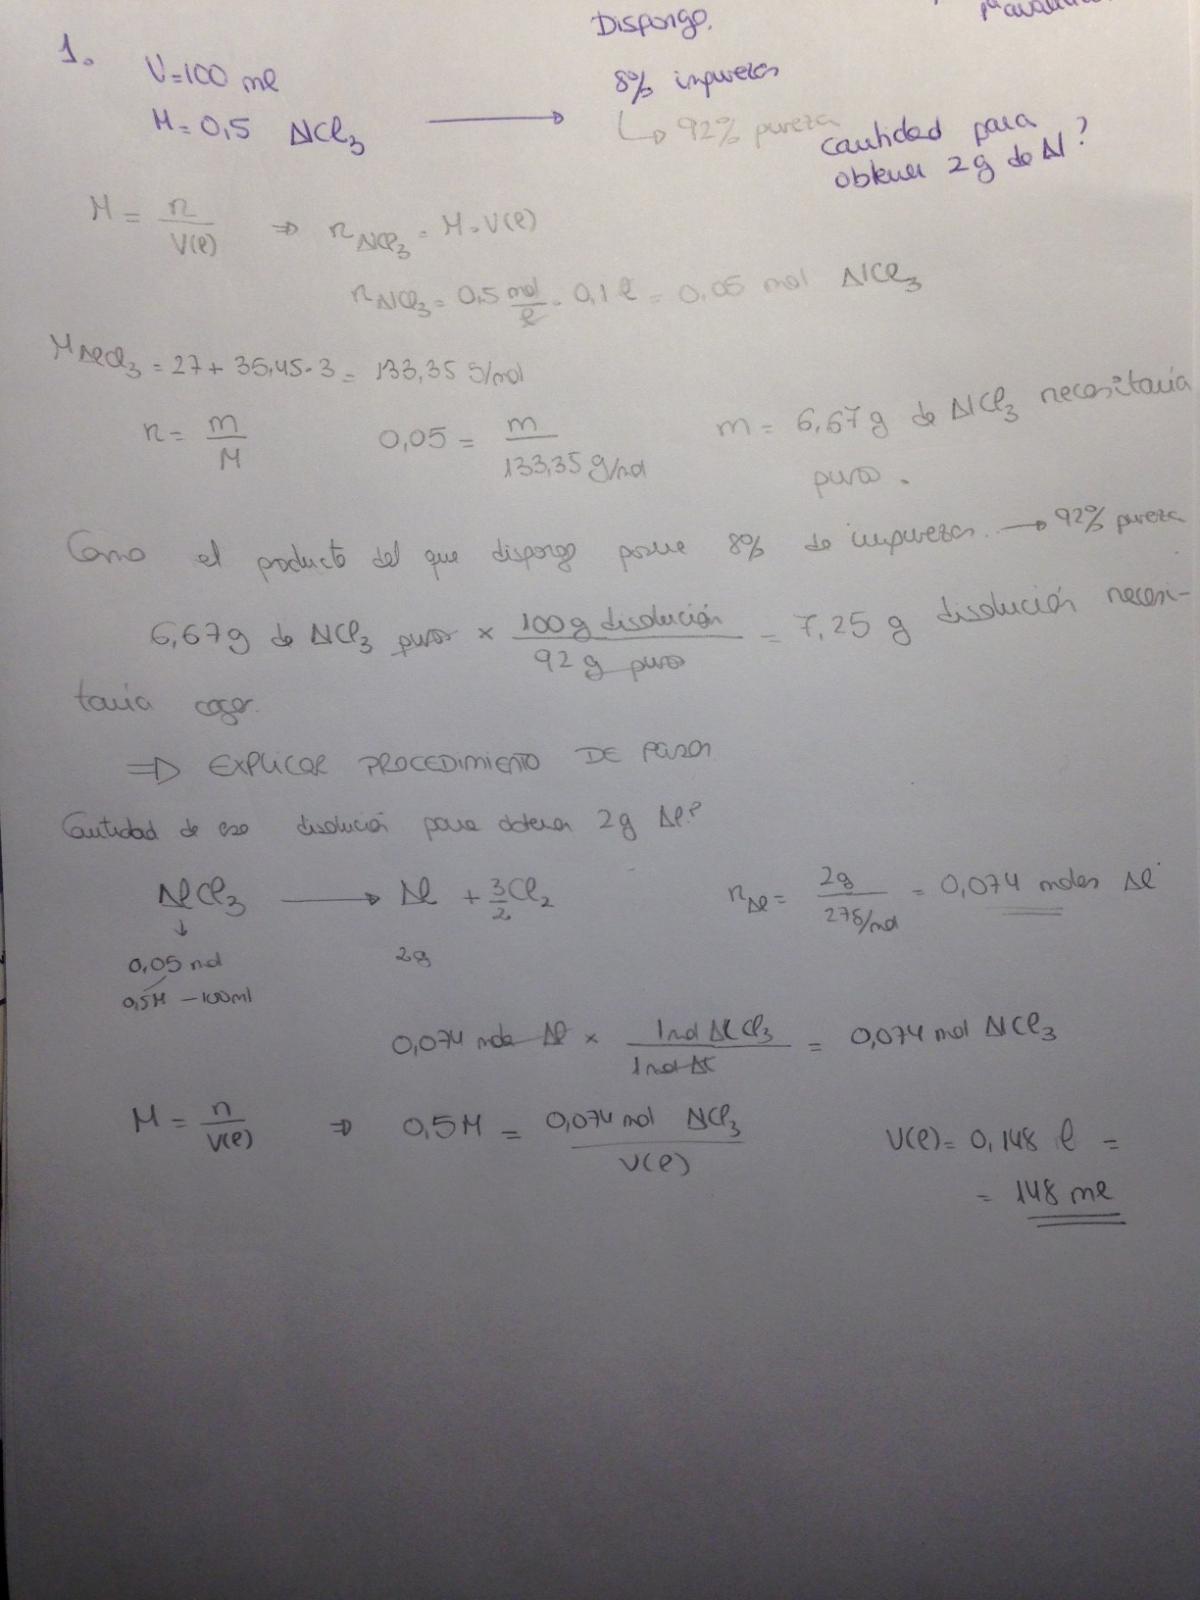 Dispongo.
1.
V=100 ml
8% impurezas
M=0,5 AlCl3
→ 92% pureza
cantidad para
obtener 2g de Al?
M = n/V(l) ⇒ nAlCl3 = M·V(l)
nAlCl3 = 0,5 mol/l · 0,1 l = 0,05 mol AlCl3
MAlCl3 = 27 + 35,45·3 = 133,35 g/mol
n = m/M 0,05 = m/133,35 g/mol m = 6,67g de AlCl3 necesitaría
puro.
Como el producto del que dispongo posee 8% de impurezas → 92% pureza
6,67g de AlCl3 puro × 100g disolución/92 g puro = 7,25 g disolución necesi-
taría coger.
⇒ EXPLICAR PROCEDIMIENTO DE PASOS
Cantidad de esa disolución para obtener 2g Al?
AlCl3 → Al + 3/2Cl2 nAl = 2g/27g/mol = 0,074 moles Al
↓
0,05 mol 2g
0,5M - 100ml
0,074 moles Al × 1mol AlCl3/1mol Al = 0,074 mol AlCl3
M = n/V(l) ⇒ 0,5M = 0,074 mol AlCl3/V(l) V(l) = 0,148 l =
= 148 ml